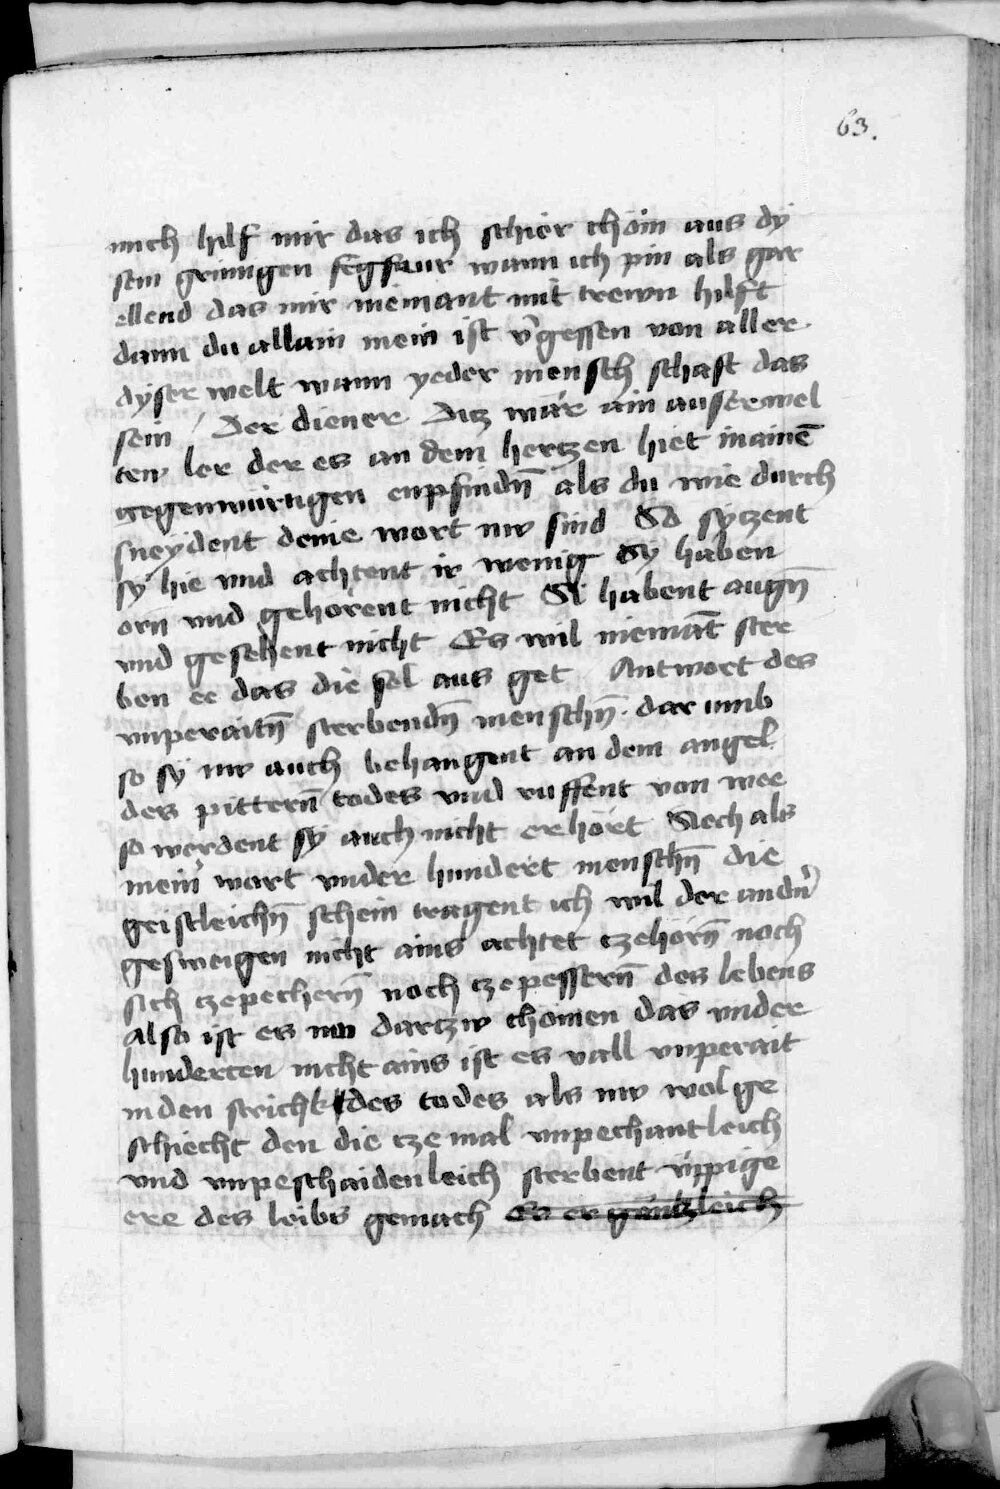 63.
mich hilf mir das ich schier chöm aus dÿ
sem grimigen fegfewr wann ich pin als gar
ellend das mir niemant mit trewn hilft
dann du allain mein ist v̄gessen von aller
dyser welt wann yeder mensch schaft das
sein Der diener Ditz wär ain auserwel
ten ler der es an dem hertzen hiet in ainē
gegenwürtigen enpfindn̄ als du wie durch
sneÿdent deine wort nw sind So sÿtzent
sÿ hie vnd achtent ir wenig Sÿ haben
orn vnd gehörent nicht Si habent augn̄
vnd gesehent nicht Es wil niemāt ster
ben ee das die sel aus get Antwort des
vnperaitn̄ sterbendn̄ menschn̄ · dar vmb
so sÿ nw auch behangent an dem angel
des pittern̄ todes vnd ruffent von wee
so werdent sÿ auch nicht erhört Siech als
meinˀ wart vnder hundert menschn̄ die
geistleichn̄ schein tragent ich wil der andnˀ
gesweigen nicht ains achtet tzehörn̄ noch
sich tzepechern̄ noch tzepessern̄ des lebens
also ist es nw dartzw chömen das vnder
hunderten nicht ains ist es vall vnperait
in den strichk des todes als nw wol ge
schiecht den die tze mal vnpechantleich
vnd vnpeschaidenleich sterbent vppige
ere des leibs gemach Es er gäntzleich